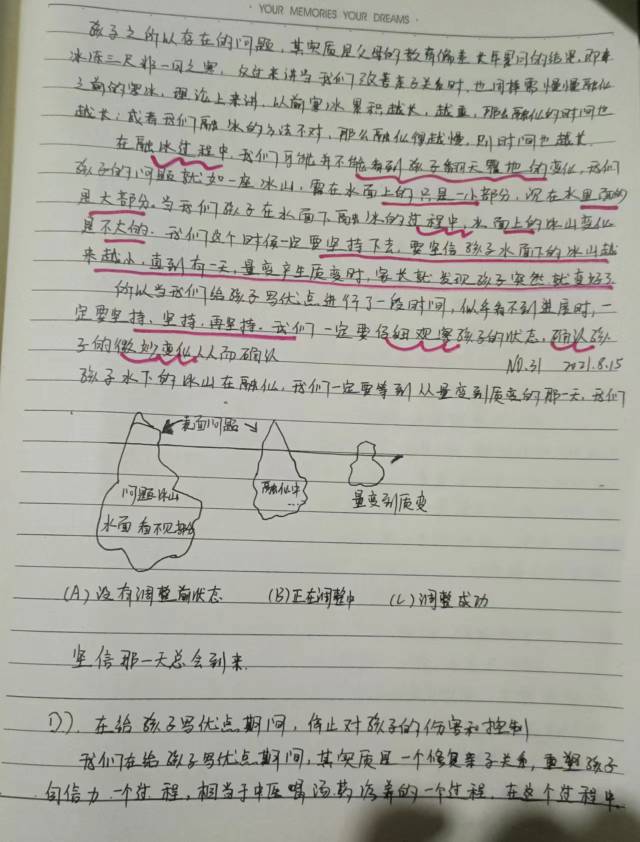 YOUR MEMORIES YOUR DREAMS
孩子之所以存在的问题，其实质是父母的教育偏差长年累月的结果，即来
冰冻三尺非一日之寒，反过来讲当我们改善亲子关系时，也同样需慢慢融化
之前的寒冰，理论上来讲，以前寒冰累积越大，越重，那么融化的时间也
越长；或者我们融冰的方法不对，那么融化得越慢，则时间也越长
在融冰过程中，我们可能看不到孩子翻天覆地的变化，我们
孩子的问题就如一座冰山，露在水面上的只是一小部分，沉在水里面的
是大部分。当我们孩子在水面下融冰的过程中，水面上的冰山变化
是不大的。我们这个时候一定要坚持下去，要坚信孩子水面下的冰山越
来越小，直到有一天，量变产生质变时，家长就发现孩子突然就变好了
所以当我们给孩子写优点进行了一段时间，似乎看不到进展时，一
定要坚持、坚持，再坚持。我们一定要仔细观察孩子的状态，确认孩
子的微妙变化从而确认
NO.31 2021.8.15
孩子水下的冰山在融化，我们一定要等到从量变到质变的那一天，我们
表面问题
问题冰山
水面看不见部分
融化中
量变到质变
(A) 没有调整前状态 (B) 正在调整中 (C) 调整成功
坚信那一天总会到来
D）. 在给孩子写优点期间，停止对孩子的伤害和控制
我们在给孩子写优点期间，其实质是一个修复亲子关系，重塑孩子
自信力一个过程，相当于中医喝汤药治养的一个过程，在这个过程中